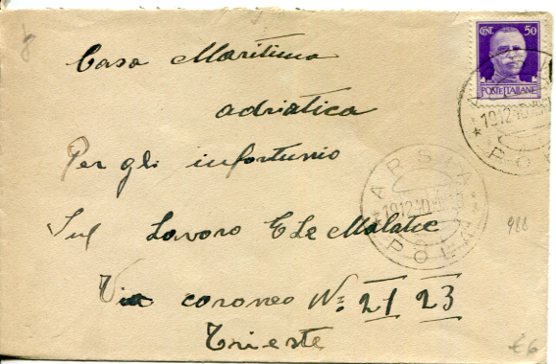 Casa Maritima
adriatica
Per gli infortunio
Sul Lavoro E Le Malatie
Via coroneo N: 21 23
Trieste
CENT. 50
POSTE ITALIANE
19.12.40
POLA
ARSIA
19.12.40
POLA
€6